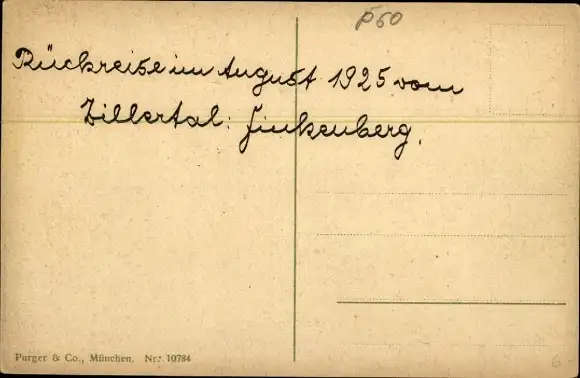 P60
Rückreise im August 1925 vom
Zillertal: Finkenberg.
Purger & Co., München. Nr. 10784
6-